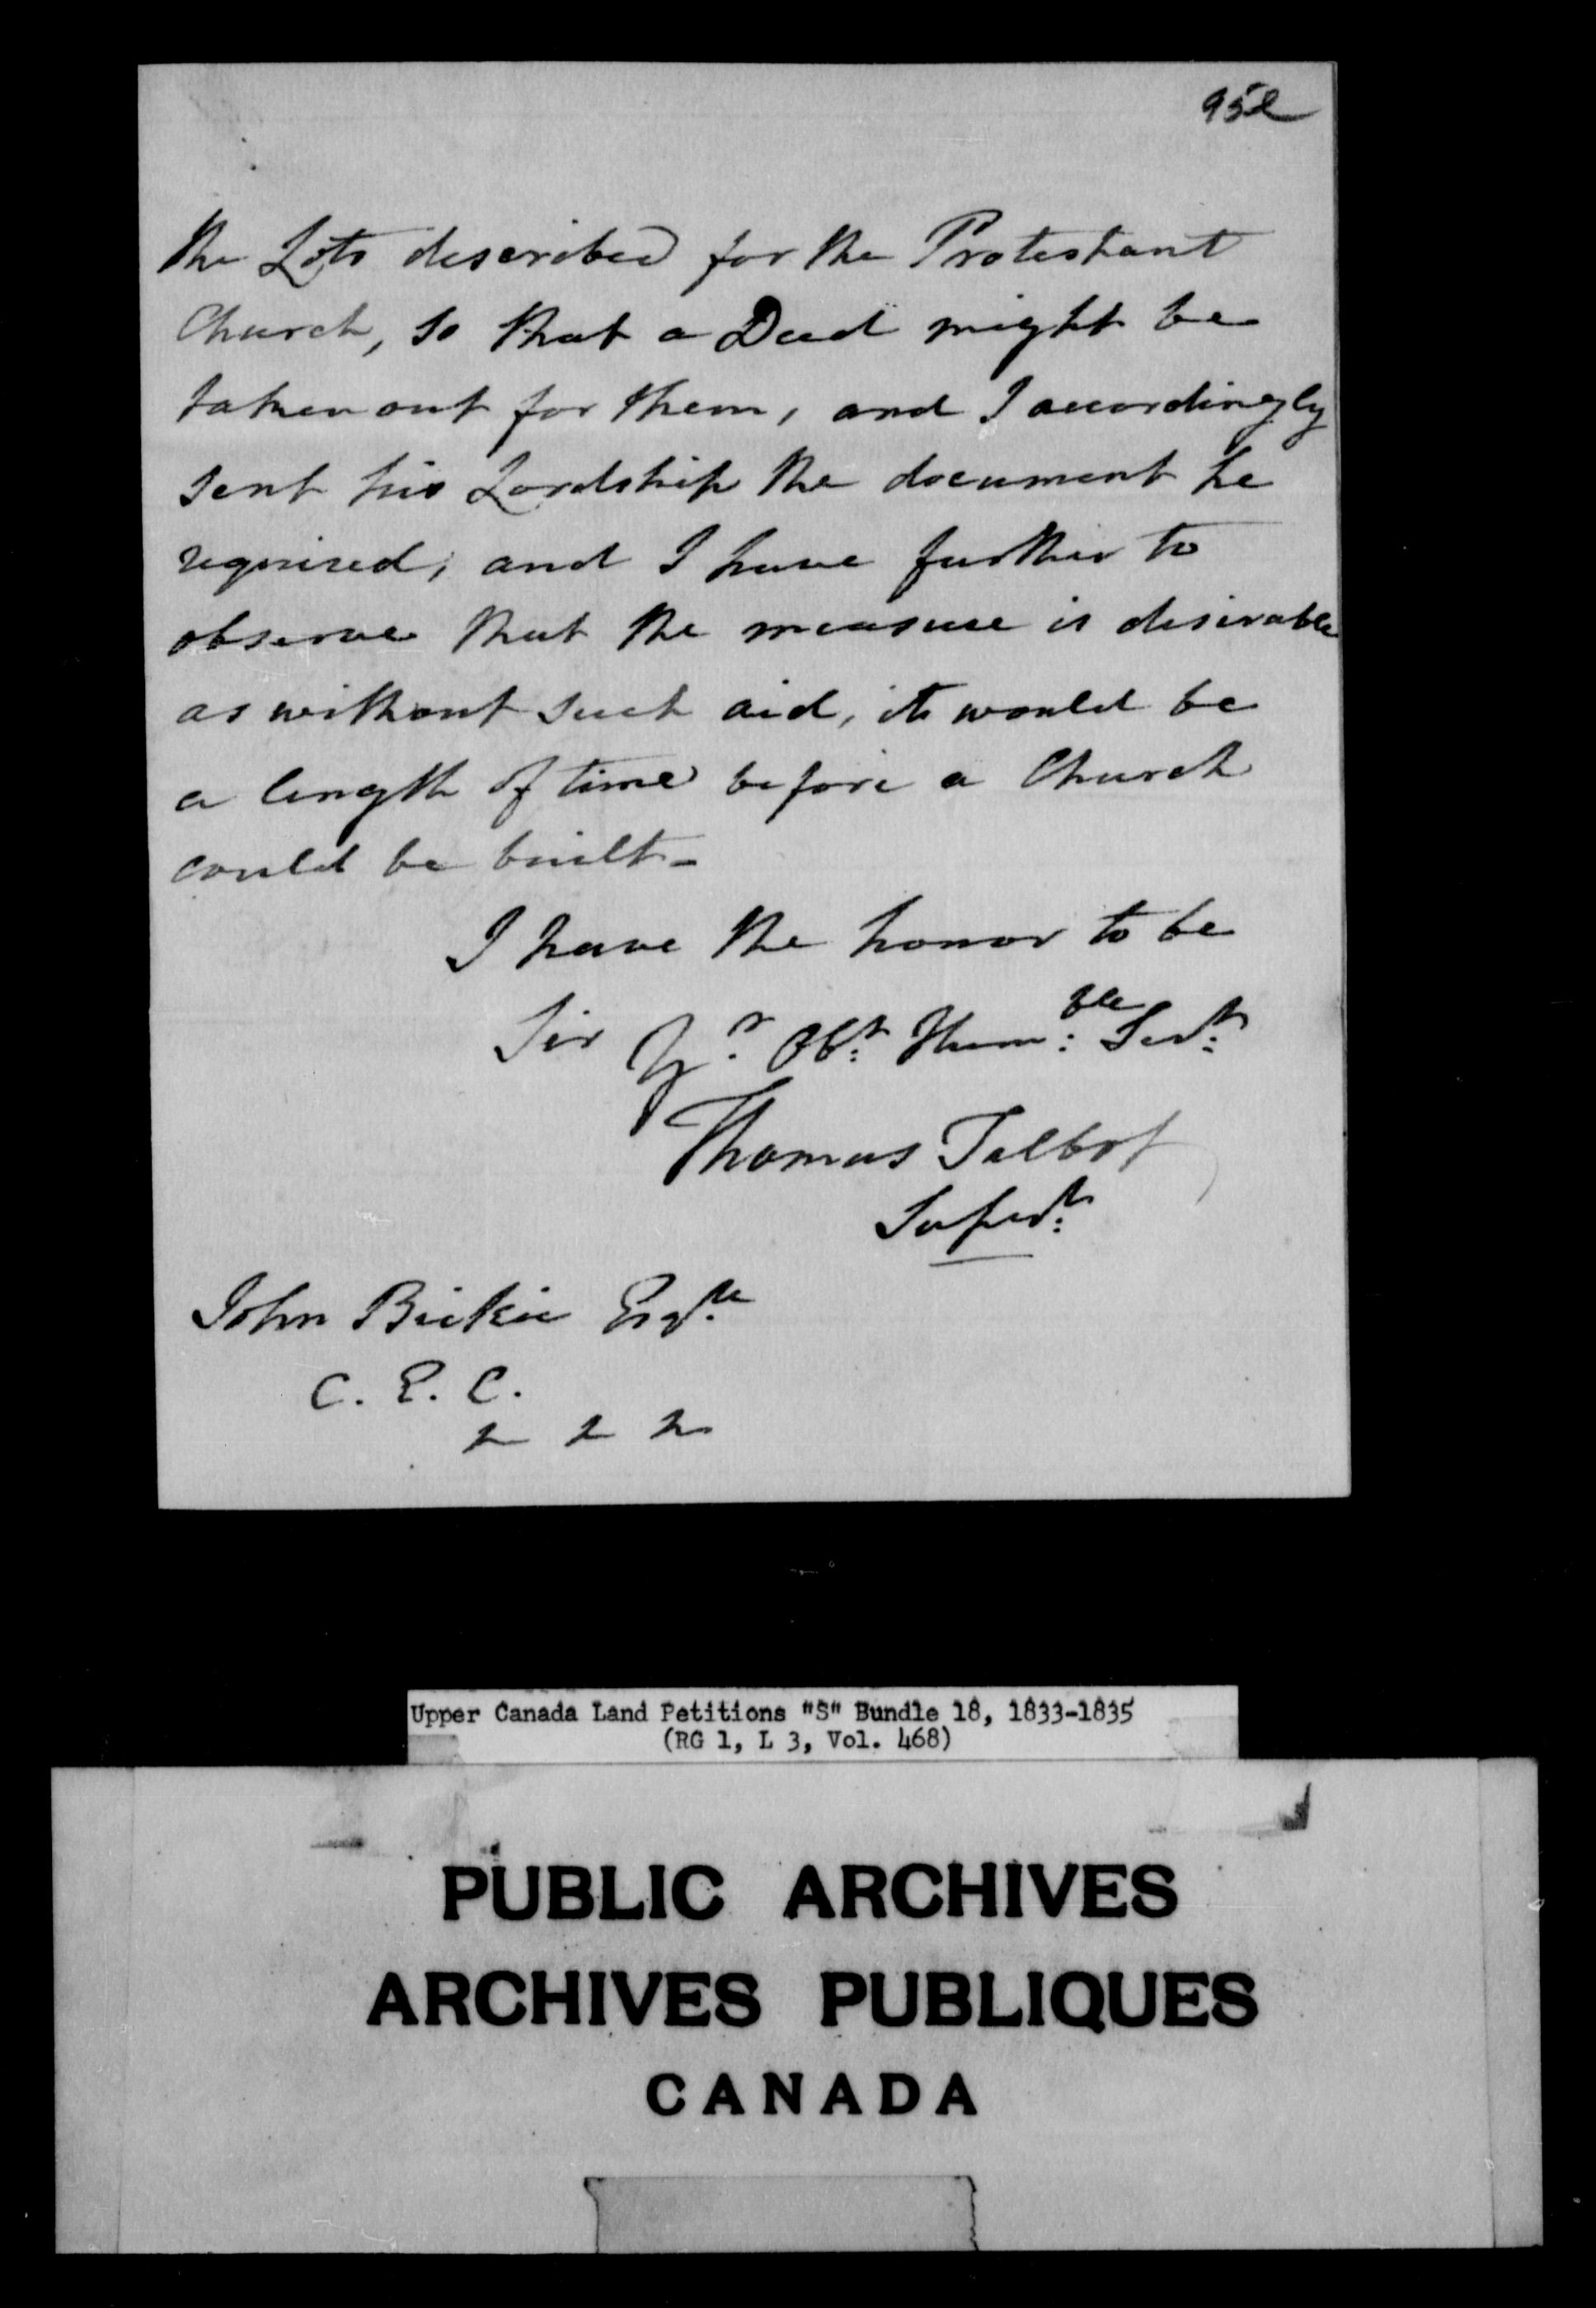 95e
the Lots described for the Protestant
Church, so that a Deed might be
taken out for them, and I accordingly
sent his Lordship the document he
required, and I have further to
observe that the measure is desirable
as without such aid, it would be
a length of time before a Church
could be built -
I have the honor to be
Sir Yr. Obt. Humble Servt.
Thomas Talbot
Supdt.
John Beikie Esqre.
C. E. C.
Upper Canada Land Petitions "S" Bundle 18, 1833-1835
(RG 1, L 3, Vol. 468)
PUBLIC ARCHIVES
ARCHIVES PUBLIQUES
CANADA